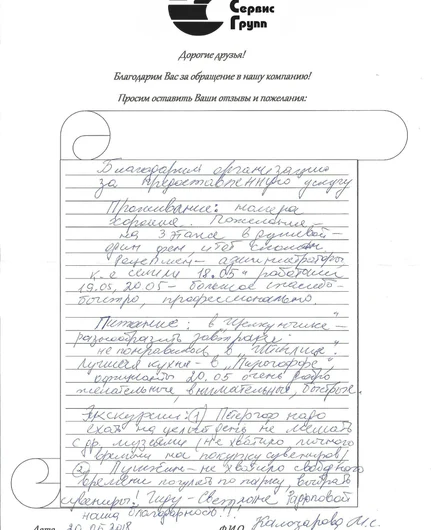 Сервис
Групп
Дорогие друзья!
Благодарим Вас за обращение в нашу компанию!
Просим оставить Ваши отзывы и пожелания:
Благодарим организацию
за предоставленную услугу
Проживание: номера
хорошие. Пожелание
на 3 этаже в душевой –
один фен, и тот сломан
Рецепшен – администраторы
к-е 18.05 и работали
19.05, 20.05 – большое спасибо –
быстро, профессионально.
Питание: в "
разнообразить завтраки;
не понравилось в "
Лучшая кухня – в "Пирогоффе",
20.05 очень добро
желательные, внимательные, быстрые.
Экскурсии: (1) Петергоф надо
ехать на целый день, не мешать
с др. музеями (не хватило личного
времени на покупку сувениров)
(2) Пушкин – не хватило свободного
времени погулять по парку, выбрать
сувениры! Гиду – Светлане
наша благодарность!!!
Дата 20.05.2018 ФИО